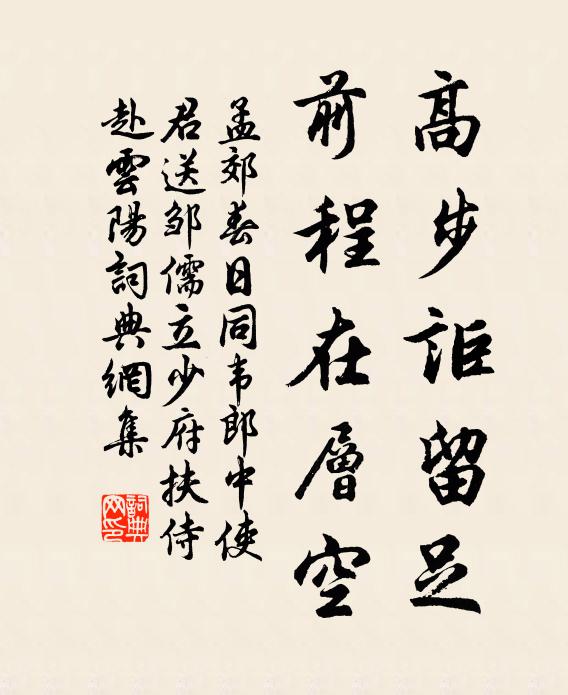 高步詎留足
前程在層空
孟郊春日同韦郎中使
君送邹儒立少府扶侍
赴雲陽詞典網集
詞典網印